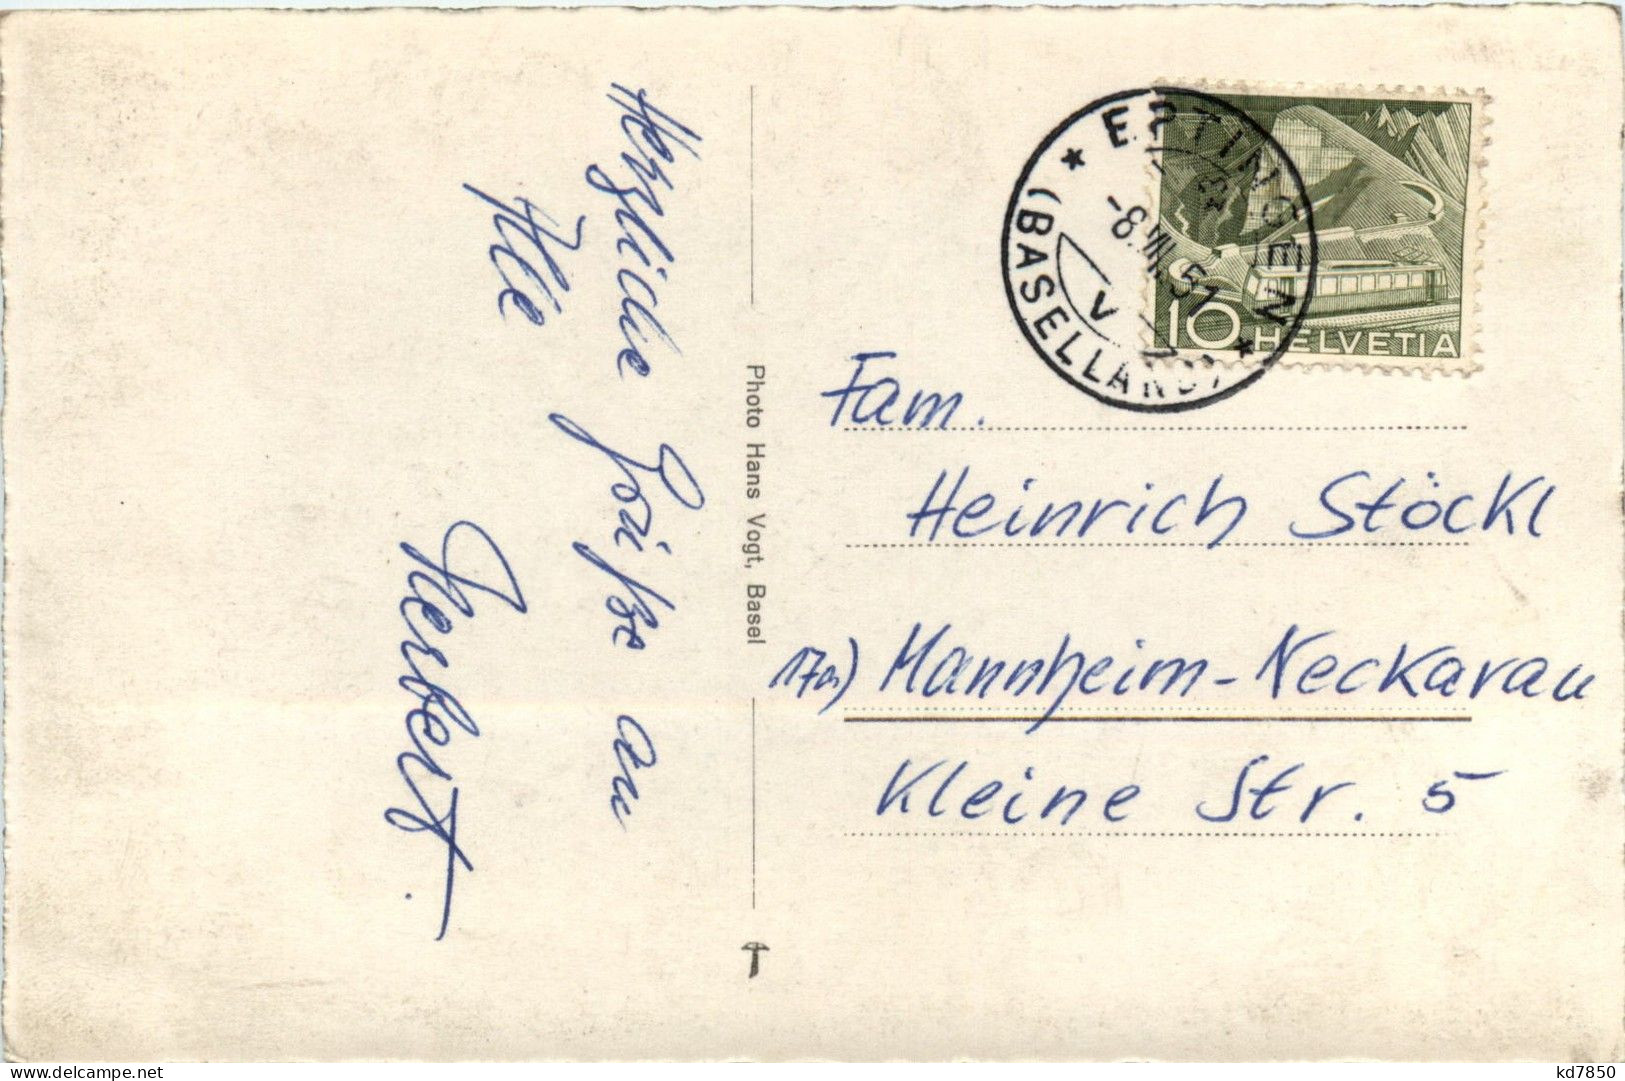 Herzliche Grüße an
Alle
Herbert.
Photo Hans Vogt, Basel
ETTINGEN
-8.VIII.51
V
(BASELLAND)
10 HELVETIA
Fam.
Heinrich Stöckl
17a) Mannheim-Neckarau
Kleine Str. 5
delcampe.net
kd7850